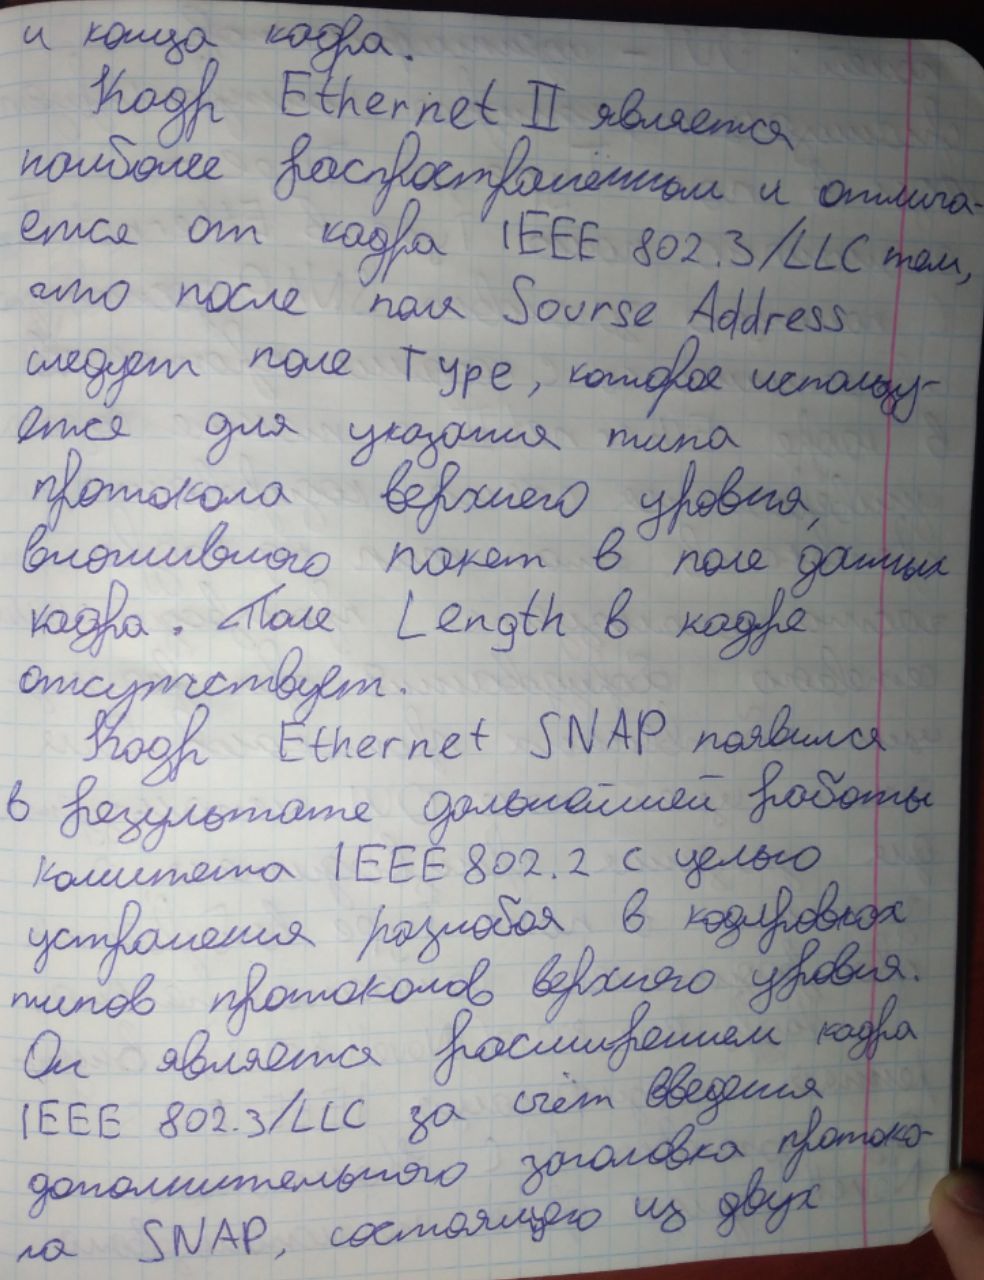 и конца кадра.
Кадр Ethernet II является
наиболее распространённым и отлича-
ется от кадра IEEE 802.3/LLC тем,
что после поля Sourse Address
следует поле Type, которое использу-
ется для указания типа
протокола верхнего уровня,
вложившего пакет в поле данных
кадра. Поле Length в кадре
отсутствует.
Кадр Ethernet SNAP появился
в результате дальнейшей работы
комитета IEEE 802.2 с целью
устранения разнобоя в кодировках
типов протоколов верхнего уровня.
Он является расширением кадра
IEEE 802.3/LLC за счёт введения
дополнительного заголовка протоко-
ла SNAP, состоящего из двух